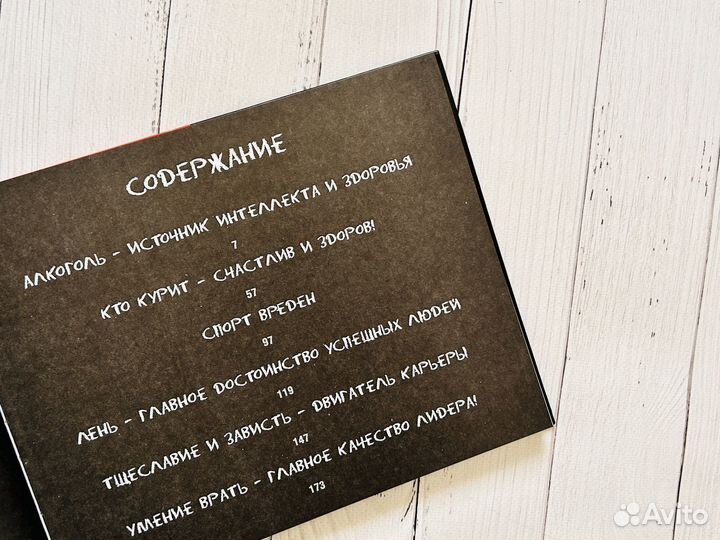 СОДЕРЖАНИЕ
АЛКОГОЛЬ – ИСТОЧНИК ИНТЕЛЛЕКТА И ЗДОРОВЬЯ
7
КТО КУРИТ – СЧАСТЛИВ И ЗДОРОВ!
57
СПОРТ ВРЕДЕН
97
ЛЕНЬ – ГЛАВНОЕ ДОСТОИНСТВО УСПЕШНЫХ ЛЮДЕЙ
119
ТЩЕСЛАВИЕ И ЗАВИСТЬ – ДВИГАТЕЛЬ КАРЬЕРЫ
147
УМЕНИЕ ВРАТЬ – ГЛАВНОЕ КАЧЕСТВО ЛИДЕРА!
173
Avito